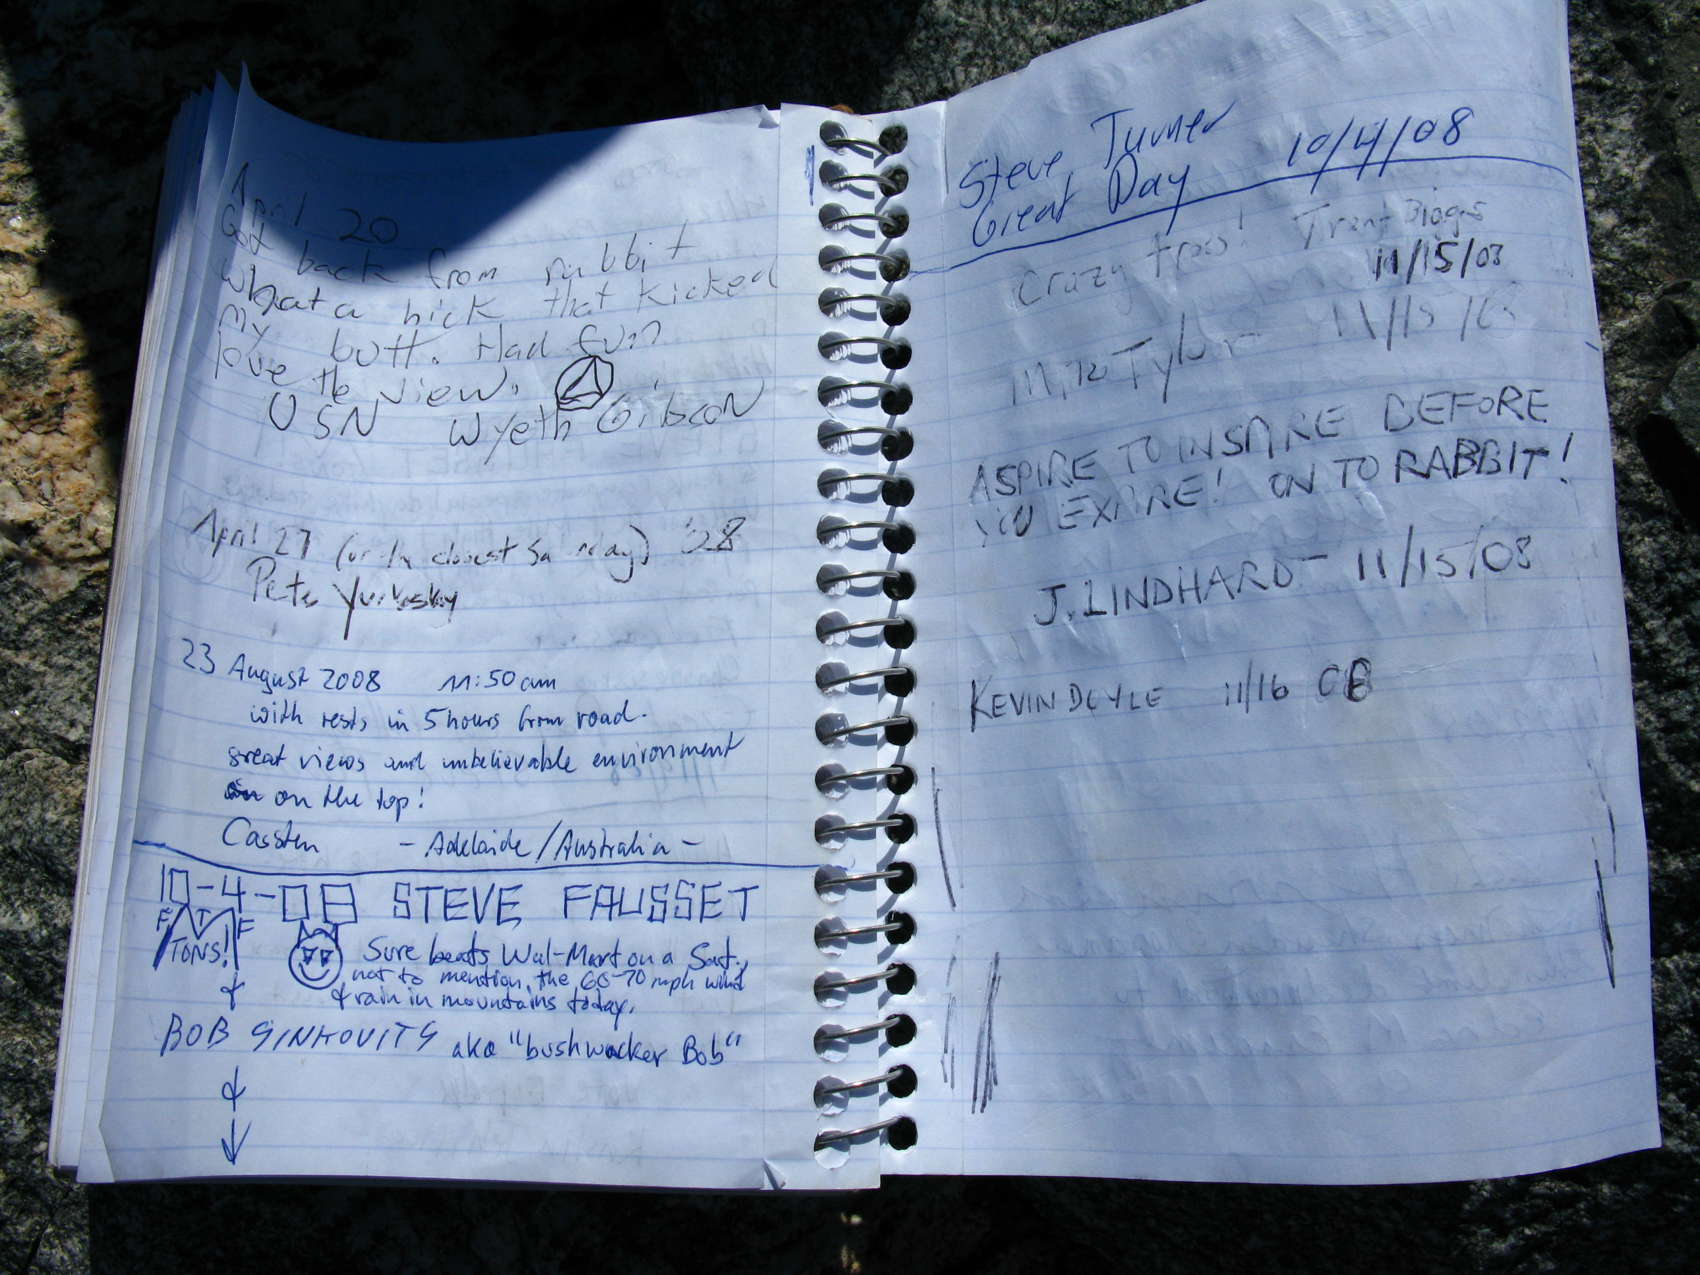 April 20
Got back from rabbit
what a hick that kicked
my butt. Had fun
love the view.
USN Wyeth Gibson
April 27 (or the closest Saturday) '08
Pete
23 August 2008 11:50am
with rests in 5 hours from road.
great views and unbelievable environment
on the top!
Carsten - Adelaide/Australia -
10-4-08 STEVE FAUSSET
FATF
TONS!
Sure beats Wal-Mart on a Sat.,
not to mention, the 60-70 mph wind
& rain in mountains today.
&
BOB SINKOVITS aka "bushwacker Bob"
&
Steve Turner
Great Day 10/4/08
Crazy Trent Biggs
11/15/08
Mike Tyler 11/15/08
ASPIRE TO INSPIRE BEFORE
YOU EXPIRE! ON TO RABBIT!
J. LINDHARD - 11/15/08
KEVIN DOYLE 11/16 08